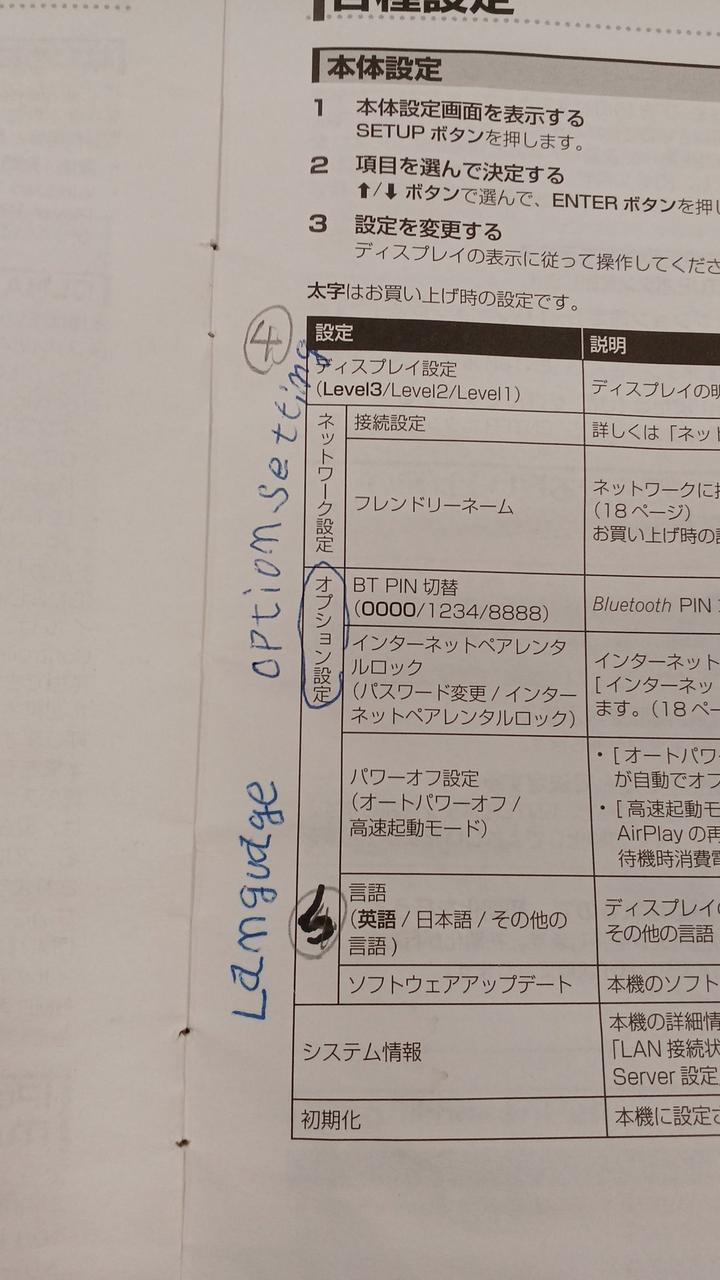 各種設定
本体設定
1 本体設定画面を表示する
SETUP ボタンを押します。
2 項目を選んで決定する
⬆/⬇ ボタンで選んで、ENTER ボタンを押し
3 設定を変更する
ディスプレイの表示に従って操作してくださ
太字はお買い上げ時の設定です。
④
設定 説明
ディスプレイ設定
(Level3/Level2/Level1)
ディスプレイの明
option setting
ネットワーク設定
接続設定
詳しくは「ネット
フレンドリーネーム
ネットワークに接
(18 ページ)
お買い上げ時の設
オプション設定
BT PIN 切替
(0000/1234/8888)
Bluetooth PIN
インターネットペアレンタ
ルロック
(パスワード変更 / インター
ネットペアレンタルロック)
インターネット
[ インターネッ
ます。(18 ペー
パワーオフ設定
(オートパワーオフ /
高速起動モード)
・[ オートパワー
が自動でオフ
・[ 高速起動モ
AirPlay の再
待機時消費電
Language
5
言語
(英語 / 日本語 / その他の
言語 )
ディスプレイの
その他の言語
ソフトウェアアップデート
本機のソフト
システム情報
本機の詳細情
「LAN 接続状
Server 設定
初期化
本機に設定さ